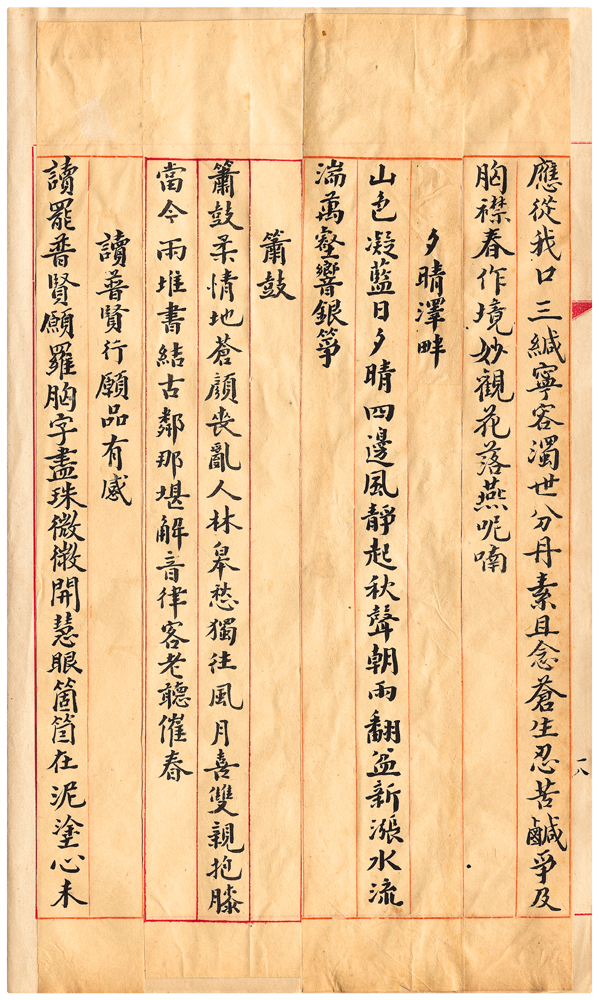 應從我口三緘寧容濁世分丹素且念蒼生忍苦鹹爭及
胸襟春作境妙觀花落燕呢喃
夕晴澤畔
山色凝藍日夕晴四邊風靜起秋聲朝雨翻盆新漲水流
湍萬壑響銀箏
簫鼓
簫鼓柔情地蒼顏喪亂人林皋愁獨往風月喜雙親抱膝
當今雨堆書結古鄰那堪解音律客老聽催春
讀普賢行願品有感
讀罷普賢願羅胸字盡珠微微開慧眼箇箇在泥塗心未
一八